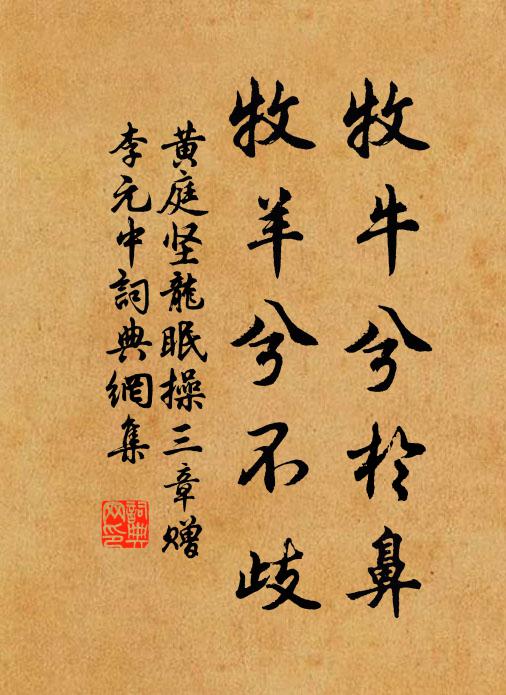 牧牛兮於鼻
牧羊兮不歧
黄庭坚龍眠操三章赠
李元中詞典網集
詞典网印